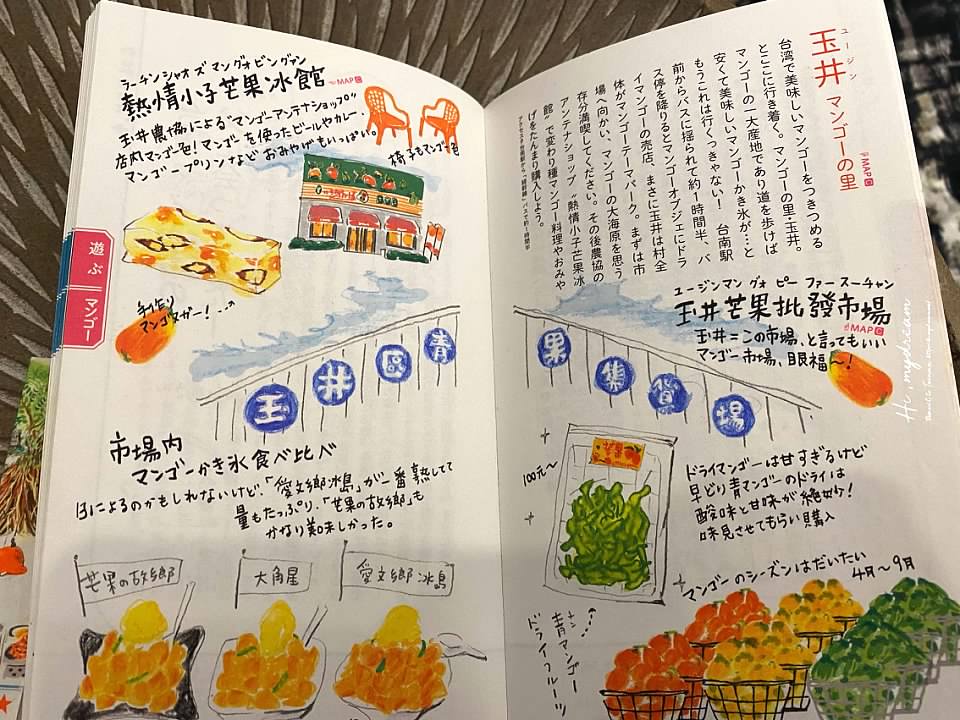 玉井 マンゴーの里
ユージン
MAP C
台湾で美味しいマンゴーをつきつめる
とここに行き着く。マンゴーの里・玉井。
マンゴーの一大産地であり道を歩けば
安くて美味しいマンゴーかき氷が…と
もうこれは行くっきゃない! 台南駅
前からバスに揺られて約1時間半、バ
ス停を降りるとマンゴーオブジェにドラ
イマンゴーの売店、まさに玉井は村全
体がマンゴーテーマパーク。まずは市
場へ向かい、マンゴーの大海原を思う
存分満喫してください。その後農協の
アンテナショップ“熱情小子芒果冰
館”で変わり種マンゴー料理やおみや
げをたんまり購入しよう。
ユージンマン グォ ピー ファースーチャン
玉井芒果批發市場
MAP C
玉井=この市場、と言ってもいい
マンゴー市場、眼福〜!
果集貨場
100元〜
芒果
ドライマンゴーは甘すぎるけど
早どり青マンゴーのドライは
酸味と甘味が絶妙!
味見させてもらい購入
青マンゴー
ドライフルーツ
マンゴーのシーズンはだいたい
4月〜9月
Hi, mydream
ラーチンシャオ ズ マン グォ ビン グァン
熱情小子芒果冰館
MAP C
玉井農協による“マンゴーアンテナショップ”
店内マンゴー色!マンゴーを使ったビールやカレー、
マンゴープリンなど おみやげもいっぱい。
椅子もマンゴー色
手作り
マンゴヌガー!
遊ぶ
マンゴー
玉井區青
市場内
マンゴーかき氷食べ比べ
日によるのかもしれないけど、「愛文鄉冰島」が一番熟してて
量もたっぷり、「芒果の故鄉」も
かなり美味しかった。
芒果の故鄉
大角星
愛文鄉冰島